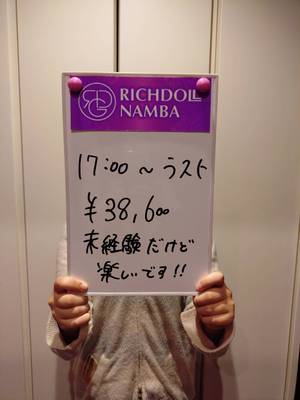 RICHDOLL
NAMBA
17:00 ~ ラスト
¥38,600
未経験だけど
楽しいです!!